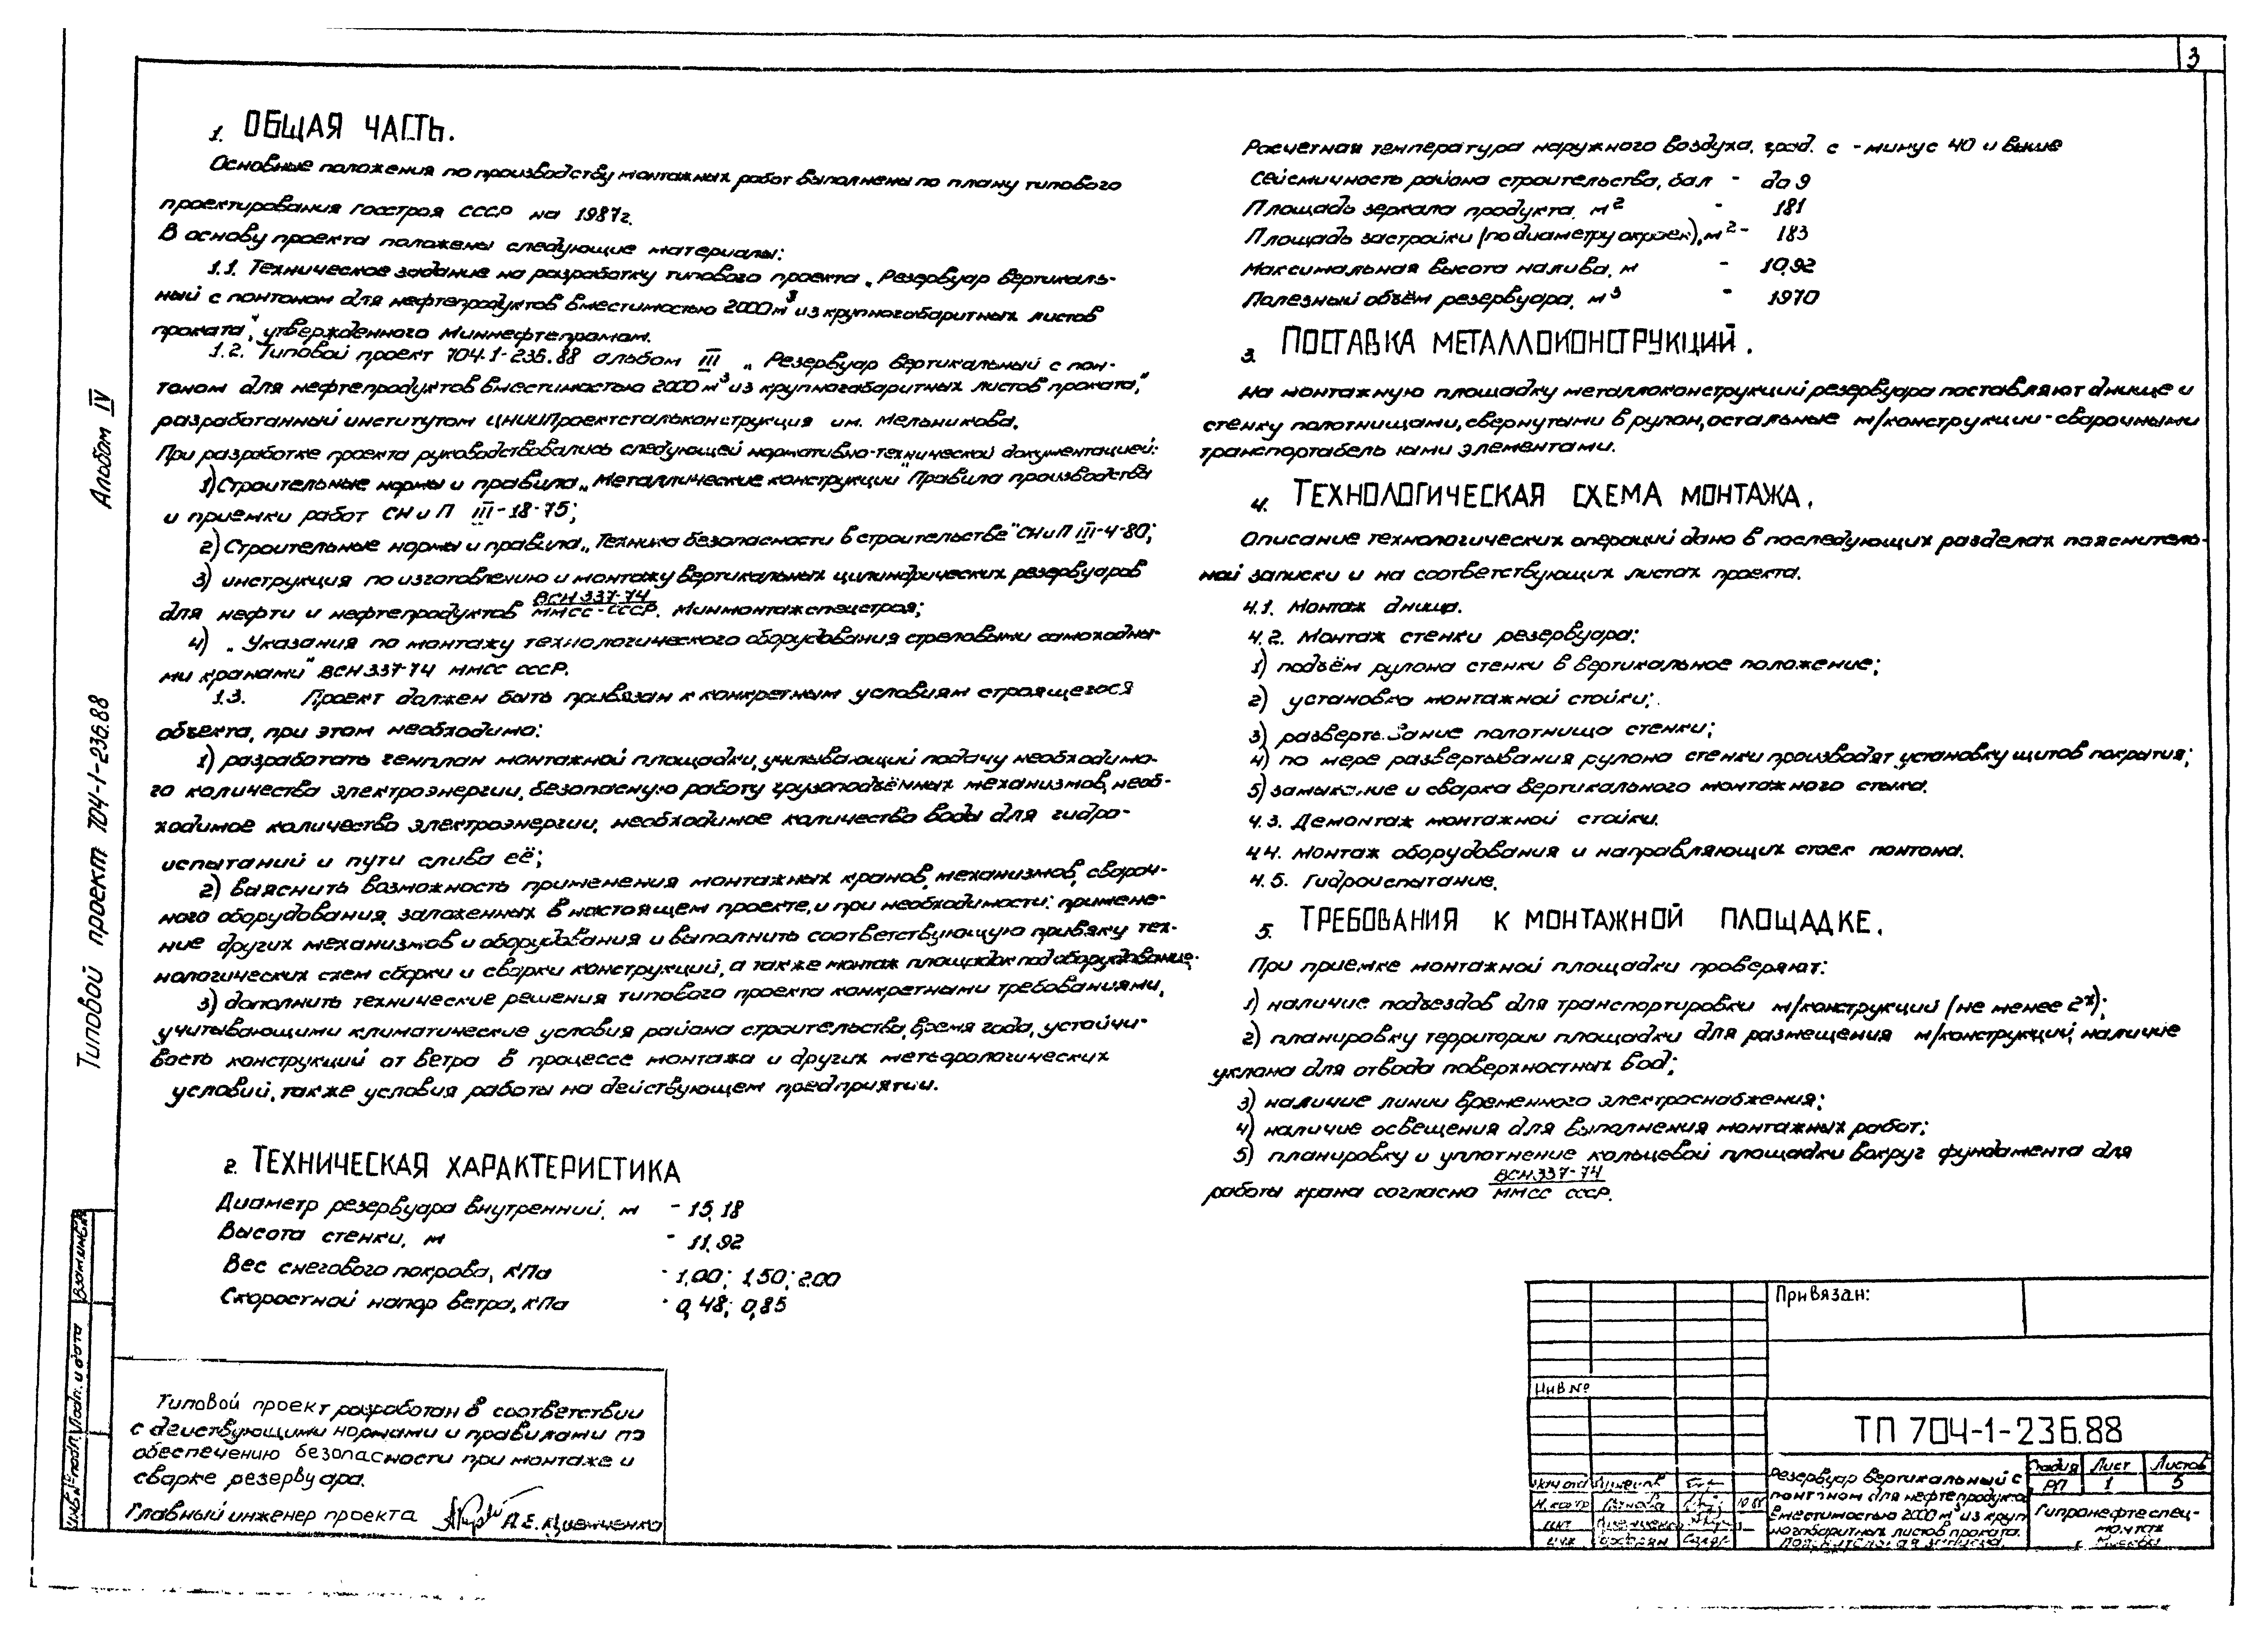 3
1. ОБЩАЯ ЧАСТЬ.
Основные положения по производству монтажных работ выполнены по плану типового
проектирования Госстроя СССР на 1987г.
В основу проекта положены следующие материалы:
1.1. Техническое задание на разработку типового проекта „Резервуар вертикаль-
ный с понтоном для нефтепродуктов вместимостью 2000 м³ из крупногабаритных листов
проката", утвержденного Миннефтепромом.
1.2. Типовой проект 704.1-236.88 альбом III „Резервуар вертикальный с пон-
тоном для нефтепродуктов вместимостью 2000 м³ из крупногабаритных листов проката",
разработанный институтом ЦНИИПроектстальконструкция им. Мельникова.
При разработке проекта руководствовались следующей нормативно-технической документацией:
1) Строительные нормы и правила „Металлические конструкции" Правила производства
и приемки работ СНиП III-18-75;
2) Строительные нормы и правила „Техника безопасности в строительстве" СНиП III-4-80;
3) инструкция по изготовлению и монтажу вертикальных цилиндрических резервуаров
для нефти и нефтепродуктов ВСН 337-74 / ММСС-СССР. Минмонтажспецстроя;
4) „Указания по монтажу технологического оборудования стреловыми самоходны-
ми кранами" ВСН 337-74 ММСС СССР.
1.3. Проект должен быть привязан к конкретным условиям строящегося
объекта, при этом необходимо:
1) разработать генплан монтажной площадки, учитывающий подачу необходимо-
го количества электроэнергии, безопасную работу грузоподъёмных механизмов, необ-
ходимое количество электроэнергии, необходимое количество воды для гидро-
испытаний и пути слива её;
2) выяснить возможность применения монтажных кранов, механизмов, свароч-
ного оборудования, заложенных в настоящем проекте, и при необходимости: примене-
ние других механизмов и оборудования и выполнить соответствующую привяку тех-
нологических схем сборки и сварки конструкций, а также монтаж площадок под оборудование.
3) дополнить технические решения типового проекта конкретными требованиями,
учитывающими климатические условия района строительства, время года, устойчи-
вость конструкций от ветра в процессе монтажа и других метеорологических
условий, также условия работы на действующем предприятии.
2. ТЕХНИЧЕСКАЯ ХАРАКТЕРИСТИКА
Диаметр резервуара внутренний, м - 15,18
Высота стенки, м - 11,92
Вес снегового покрова, кПа - 1,00; 1,50; 2,00
Скоростной напор ветра, кПа - 0,48; 0,85
Типовой проект разработан в соответствии
с действующими нормами и правилами по
обеспечению безопасности при монтаже и
сварке резервуара.
Главный инженер проекта
Расчетная температура наружного воздуха, град. С - минус 40 и выше
Сейсмичность района строительства, бал - до 9
Площадь зеркала продукта, м² - 181
Площадь застройки (по диаметру окроек), м² - 183
Максимальная высота налива, м - 10,92
Полезный объём резервуара, м³ - 1970
3. ПОСТАВКА МЕТАЛЛОКОНСТРУКЦИЙ.
На монтажную площадку металлоконструкций резервуара поставляют днище и
стенку полотнищами, свернутыми в рулон, остальные м/конструкции - сварочными
транспортабель ными элементами.
4. ТЕХНОЛОГИЧЕСКАЯ СХЕМА МОНТАЖА.
Описание технологических операций дано в последующих разделах пояснитель-
ной записки и на соответствующих листах проекта.
4.1. Монтаж днища.
4.2. Монтаж стенки резервуара:
1) подъём рулона стенки в вертикальное положение;
2) установка монтажной стойки;
3) развертывание полотнища стенки;
4) по мере развертывания рулона стенки производят установку щитов покрытия;
5) замыкание и сварка вертикального монтажного стыка.
4.3. Демонтаж монтажной стойки.
4.4. Монтаж оборудования и направляющих стоек понтона.
4.5. Гидроиспытание.
5. ТРЕБОВАНИЯ К МОНТАЖНОЙ ПЛОЩАДКЕ.
При приемке монтажной площадки проверяют:
1) наличие подъездов для транспортировки м/конструкций (не менее 2х);
2) планировку территории площадки для размещения м/конструкций, наличие
уклона для отвода поверхностных вод;
3) наличие линии временного электроснабжения;
4) наличие освещения для выполнения монтажных работ;
5) планировку и уплотнение кольцевой площадки вокруг фундамента для
работы крана согласно ВСН 337-74 / ММСС СССР.
Привязан:
Инв №
ТП 704-1-236.88
Резервуар вертикальный с
понтоном для нефтепродуктов
вместимостью 2000 м³ из круп
ногабаритных листов проката.
Пояснительная записка.
Стадия Лист Листов
РП 1 5
Гипронефтеспец-
монтаж
г. Москва
Н.контр
Альбом IV
Типовой проект 704-1-236.88
Взам.инв.№
Подп. и дата
Инв.№ подл.